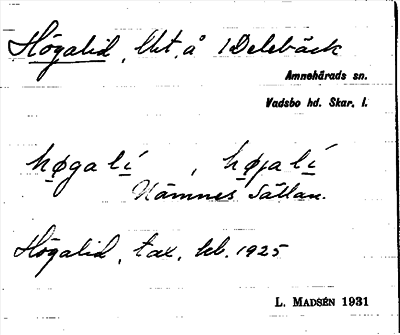 Högalid, lht. å 1 Delebäck
Amnehärads sn.
Vadsbo hd. Skar. l.
høga lí , høja lí
Nämnes sällan.
Högalid, tax. kb. 1925
L. MADSÉN 1931